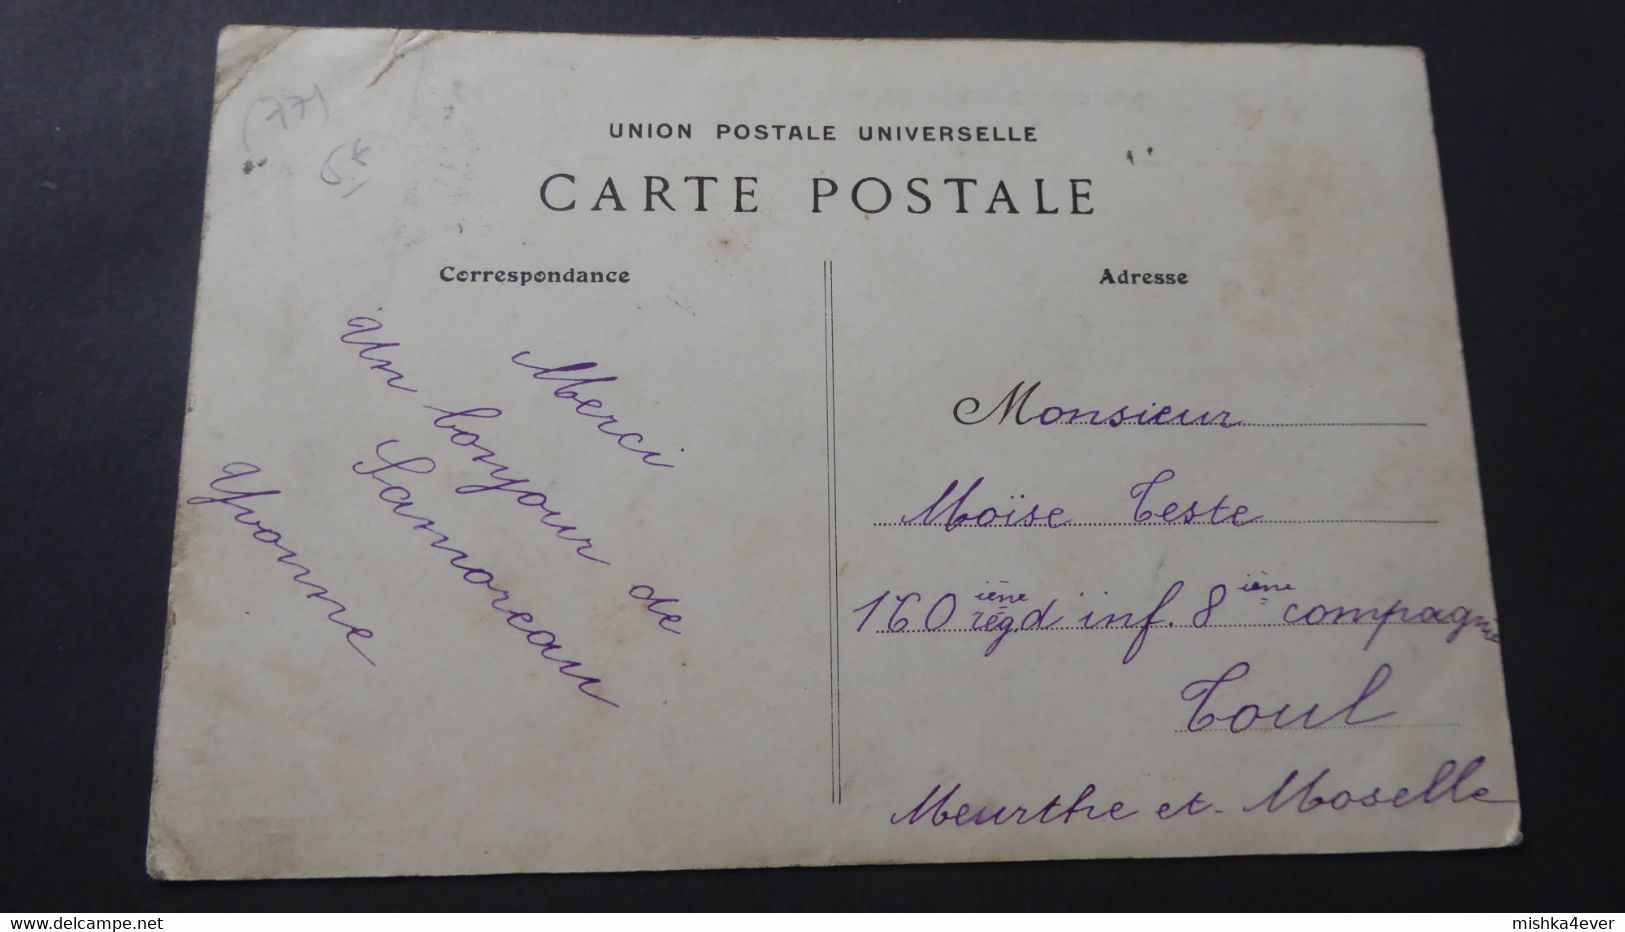 (77)
UNION POSTALE UNIVERSELLE
CARTE POSTALE
Correspondance
Merci
Un bonjour de
Samoreau
Yvonne
Adresse
Monsieur
Moïse Teste
160 ième rég. d inf. 8 ième compagne
Toul
Meurthe et-Moselle
www.delcampe.net
mishka4ever